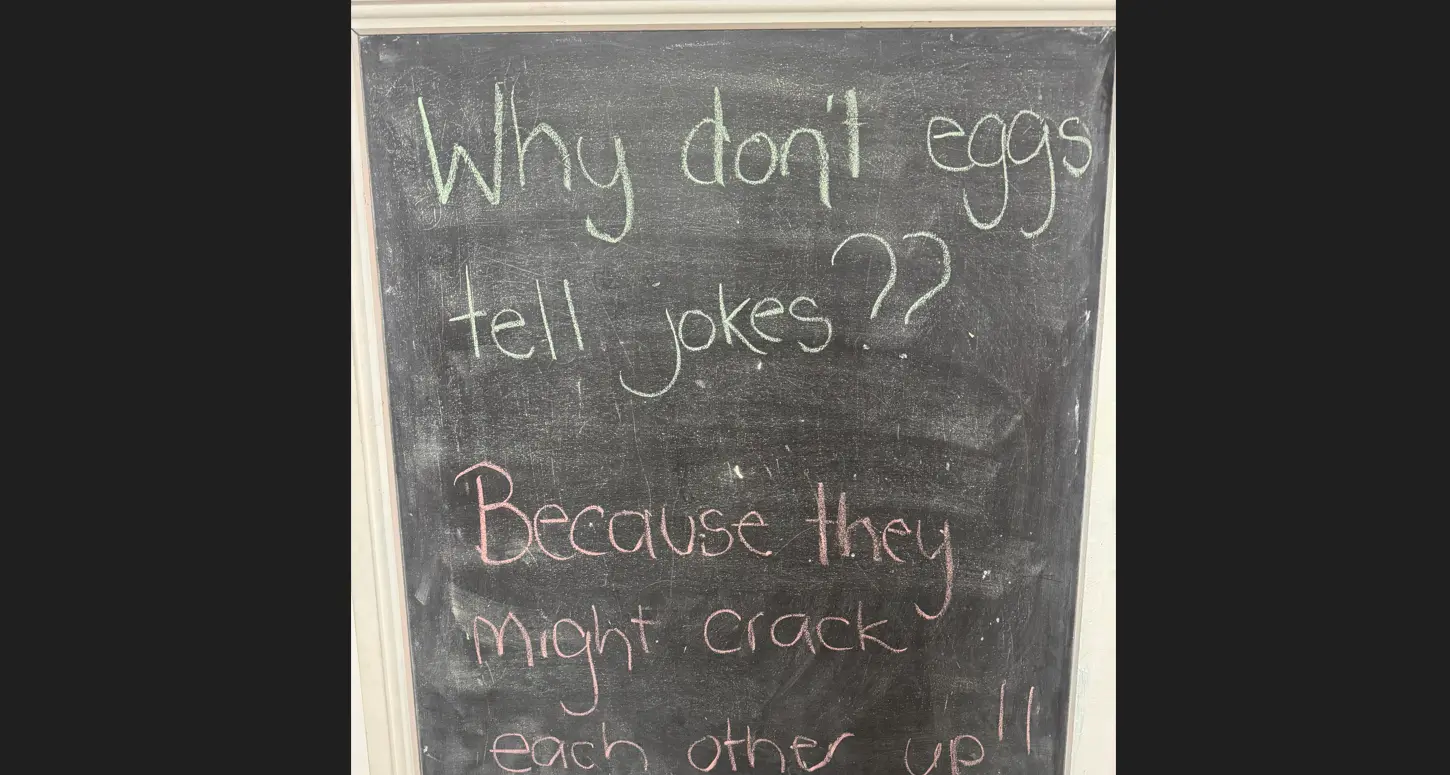 Why don't eggs
tell jokes??
Because they
might crack
each other up!!